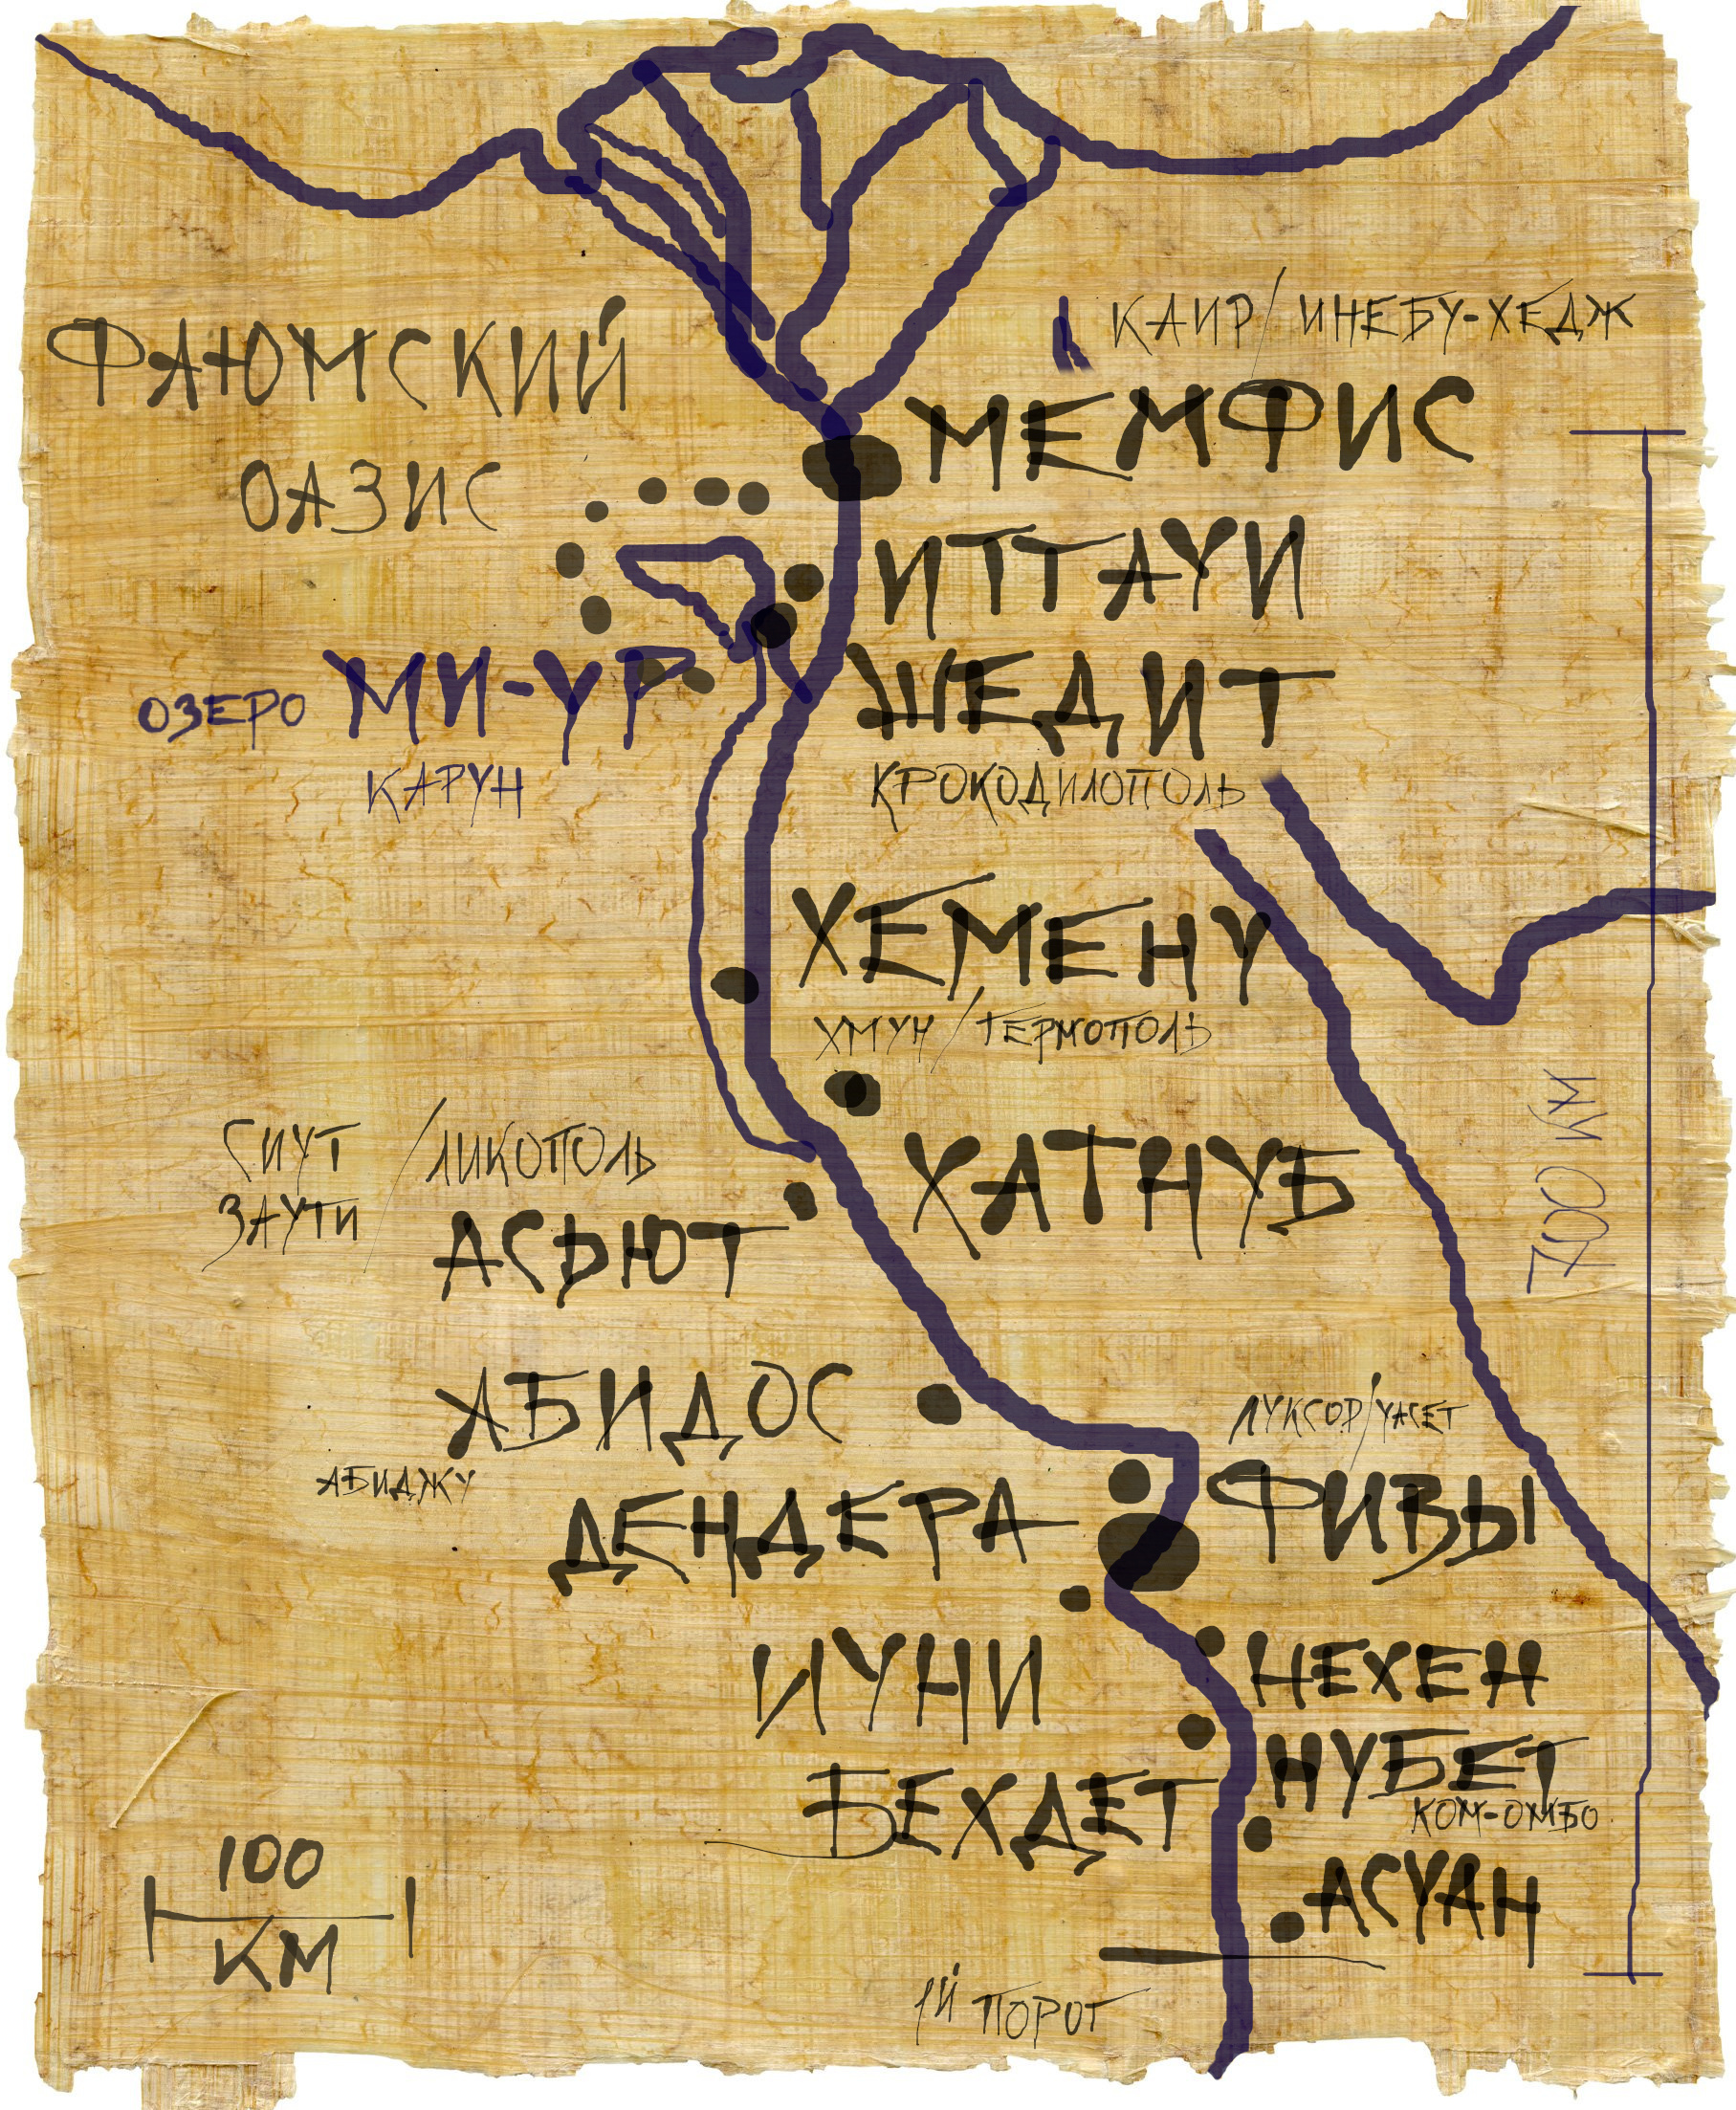 КАИР/ИНЕБУ-ХЕДЖ
ФАЮМСКИЙ
ОАЗИС
МЕМФИС
ИТТАУИ
ШЕДИТ
КРОКОДИЛОПОЛЬ
ОЗЕРО МИ-УР
КАРУН
ХЕМЕНУ
ХМУН/ГЕРМОПОЛЬ
ХАТНУБ
СИУТ
ЗАУТИ
/ЛИКОПОЛЬ
АСЬЮТ
700 КМ
АБИДОС
АБИДЖУ
ЛУКСОР/УАСЕТ
ФИВЫ
ДЕНДЕРА
ИУНИ
НЕХЕН
БЕХДЕТ
НУБЕТ
КОМ-ОМБО
АСУАН
1Й ПОРОГ
100
КМ